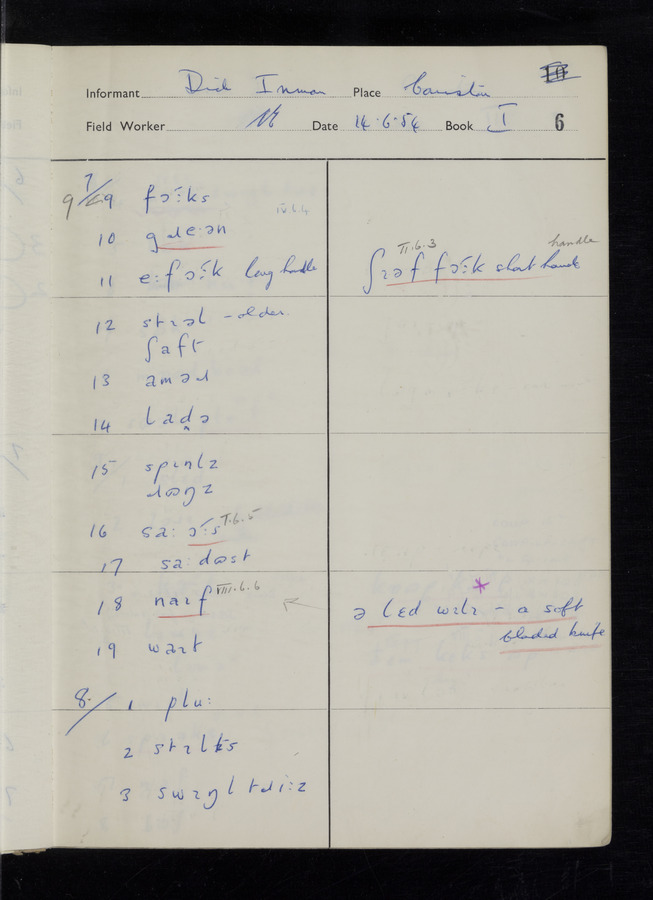 10
Informant Dick Inman Place Coniston
Field Worker Date 14.6.54 Book I 6
7/9 fɔ:ks
IV.6.4
10
II.6.3 handle
11 e: fɔ:k long handle ʃɹəf fɔ:k short handle
12 stɹəl - older.
ʃaft
13 aməɹ
14 ladə
15 spɩnlz
ɹɷŋz
16 sa: ɔ:s I.6.5
17 sa:dɷst
18 naɩf VIII.6.6 ə lɛd wɩlɩ * - a soft
bladed knife
19 waɩt
8/ 1 plu:
2 stɩlts
3 swɩŋltɹi:z